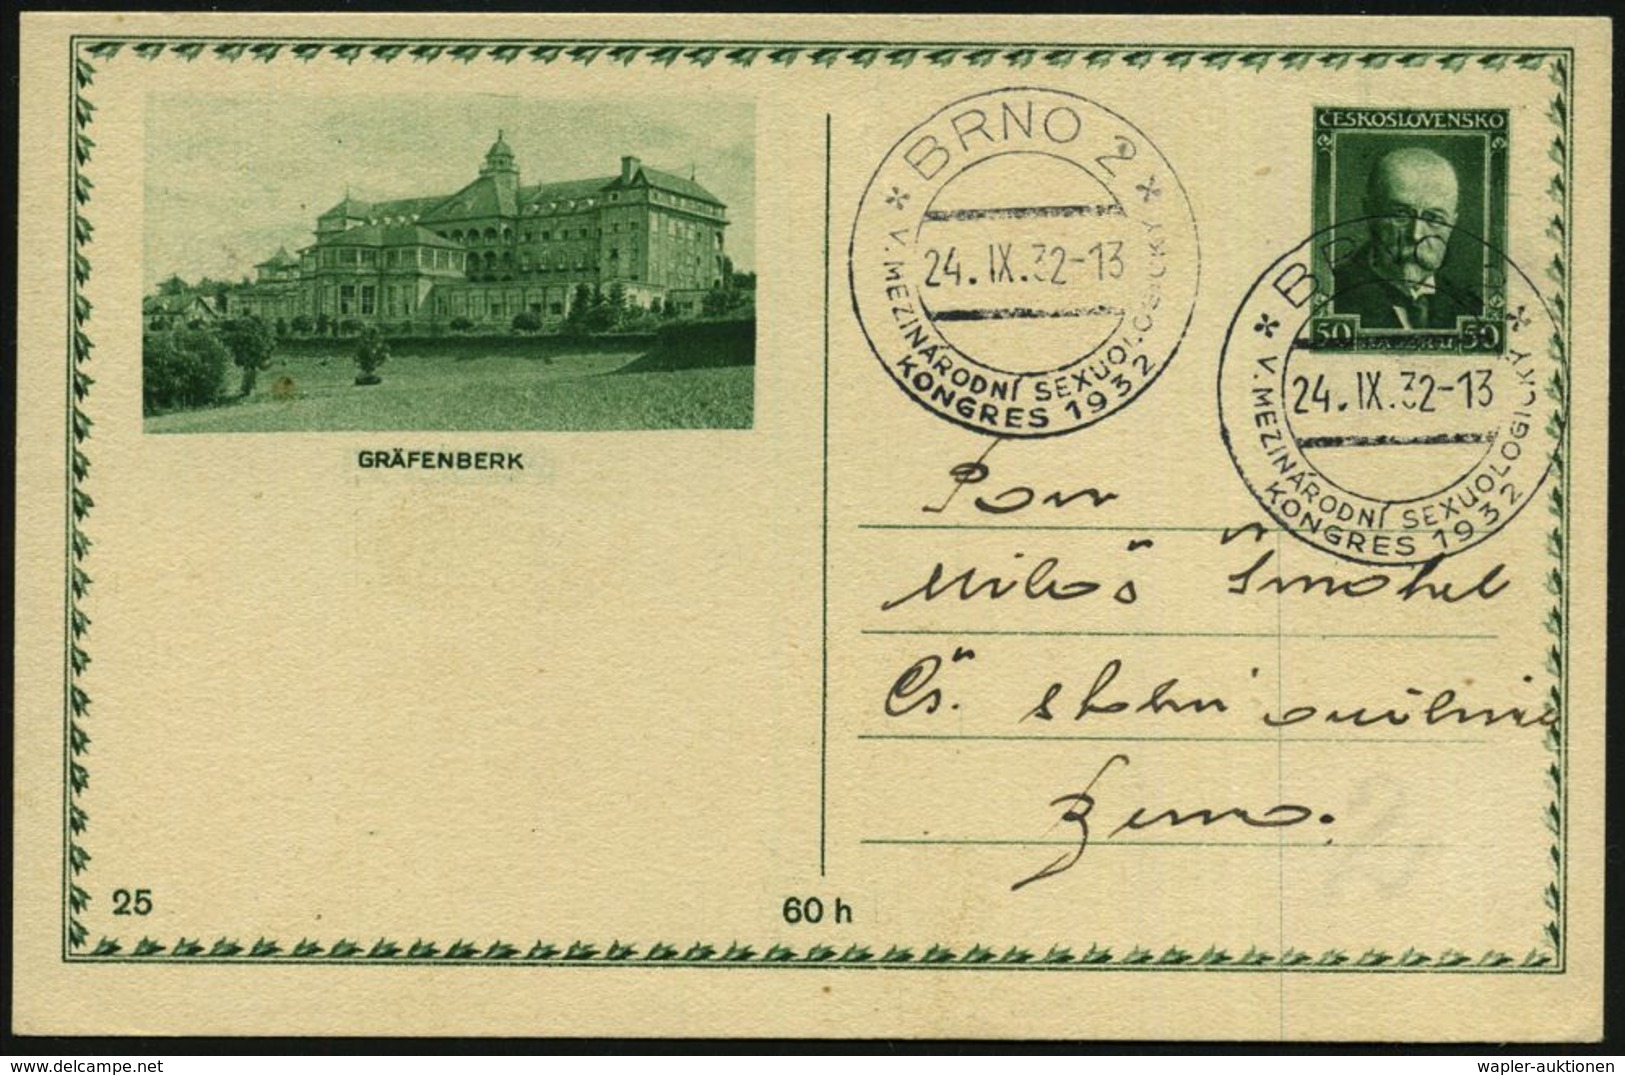 ČESKOSLOVENSKO
50 50
BRNO 2
24. IX. 32-13
V. MEZINÁRODNÍ SEXUOLOGICKÝ
KONGRES 1932
BRNO
24. IX. 32-13
V. MEZINÁRODNÍ SEXUOLOGICKÝ
KONGRES 1932
GRÄFENBERK
Pan
Miloš Smahel
Čs. státní
Brno.
25
60 h
www.delcampe.net
wapler-auktionen